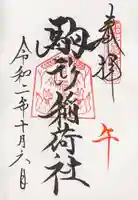 奉拝
駒形稲荷社
午
令和二年十月六日